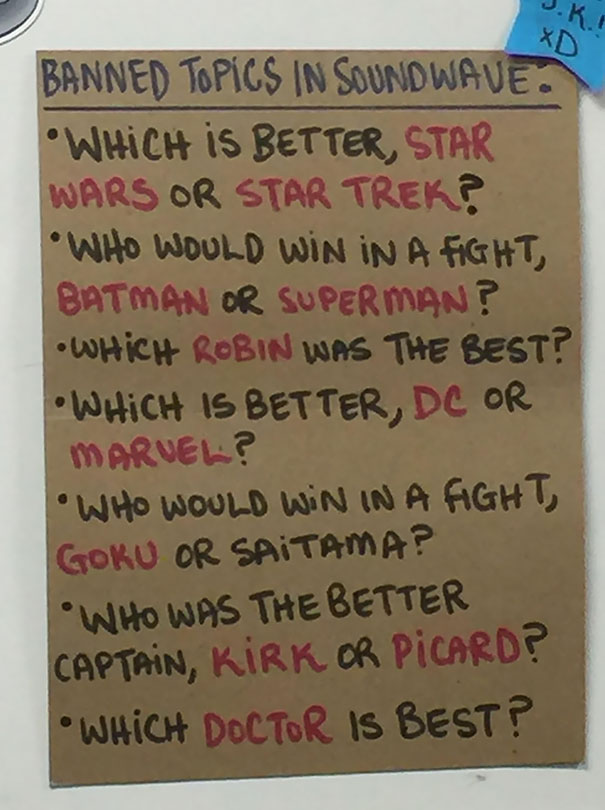 J.K.!
xD
BANNED TOPICS IN SOUNDWAVE:
•WHICH IS BETTER, STAR
WARS OR STAR TREK?
•WHO WOULD WIN IN A FIGHT,
BATMAN OR SUPERMAN?
•WHICH ROBIN WAS THE BEST?
•WHICH IS BETTER, DC OR
MARVEL?
•WHO WOULD WIN IN A FIGHT,
GOKU OR SAITAMA?
•WHO WAS THE BETTER
CAPTAIN, KIRK OR PICARD?
•WHICH DOCTOR IS BEST?